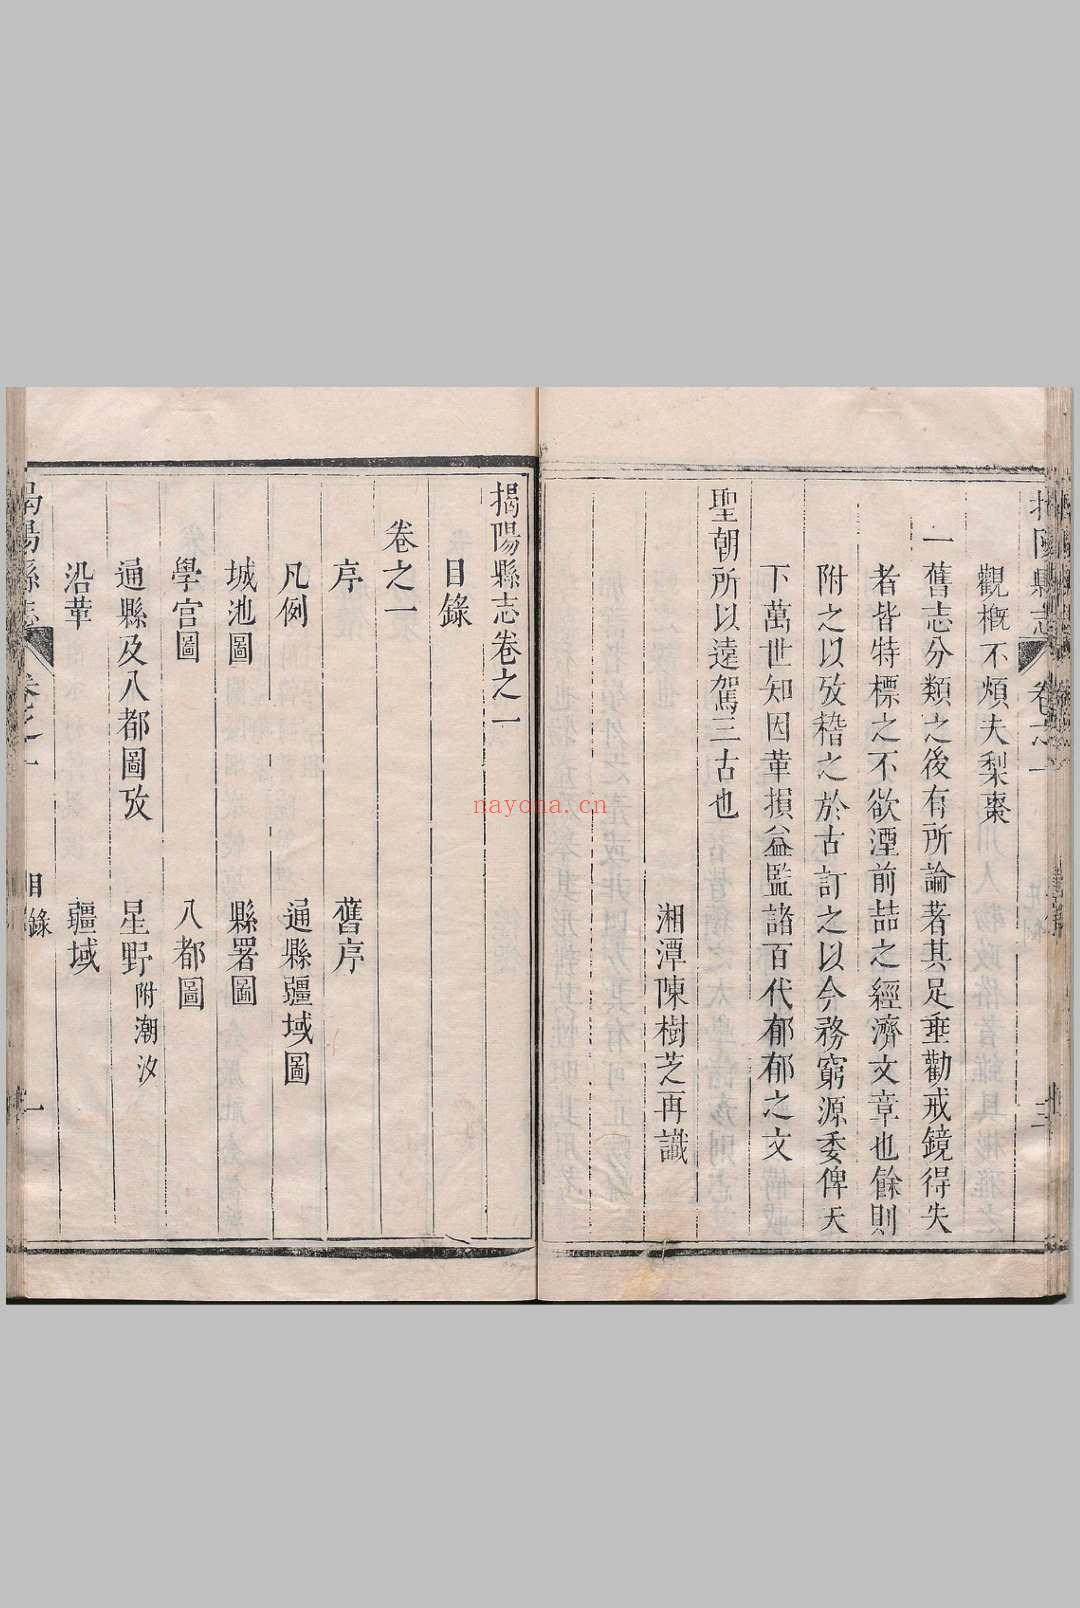 觀概不煩夫梨棗
一舊志分類之後有所論著其足垂勸戒鏡得失
者皆特標之不欲湮前喆之經濟文章也餘則
附之以攷稽之於古訂之以今務窮源委俾天
下萬世知因革損益監諸百代郁郁之文
聖朝所以遠駕三古也
湘潭陳樹芝再識
揭陽縣志卷之一
目錄
卷之一
序 舊序
凡例 通縣疆域圖
城池圖 縣署圖
學宮圖 八都圖
通縣及八都圖攷 星野附潮汐
沿革 疆域
揭陽縣志 卷之一 目錄 一
nayona.cn